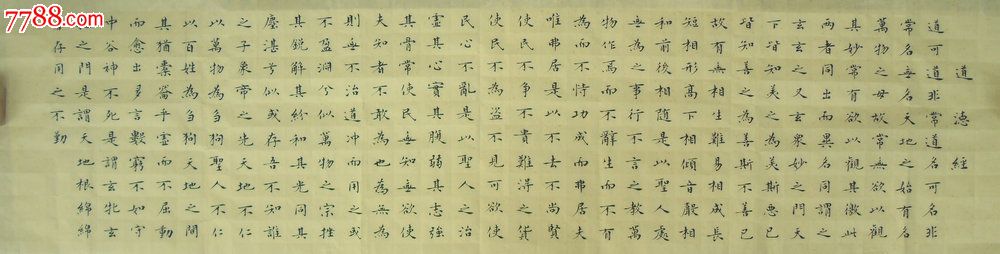 7788.com
道德經
道可道非常道名可名非
常名無名天地之始有名
萬物之母故常無欲以觀
其妙常有欲以觀其徼此
兩者同出而異名同謂之
玄玄之又玄眾妙之門天
下皆知美之為美斯惡已
皆知善之為善斯不善已
故有無相生難易相成長
短相形高下相傾音聲相
和前後相隨是以聖人處
無為之事行不言之教萬
物作焉而不辭生而不有
為而不恃功成而弗居夫
唯弗居是以不去不尚賢
使民不爭不貴難得之貨
使民不為盜不見可欲使
民心不亂是以聖人之治
虛其心實其腹弱其志強
其骨常使民無知無欲使
夫知者不敢為也為無為
則無不治道沖而用之或
不盈淵兮似萬物之宗挫
其銳解其紛和其光同其
塵湛兮似或存吾不知誰
之子象帝之先天地不仁
以萬物為芻狗聖人不仁
以百姓為芻狗天地之間
其猶橐籥乎虛而不屈動
而愈出多言數窮不如守
中谷神不死是謂玄牝玄
牝之門是謂天地根綿綿
若存用之不勤